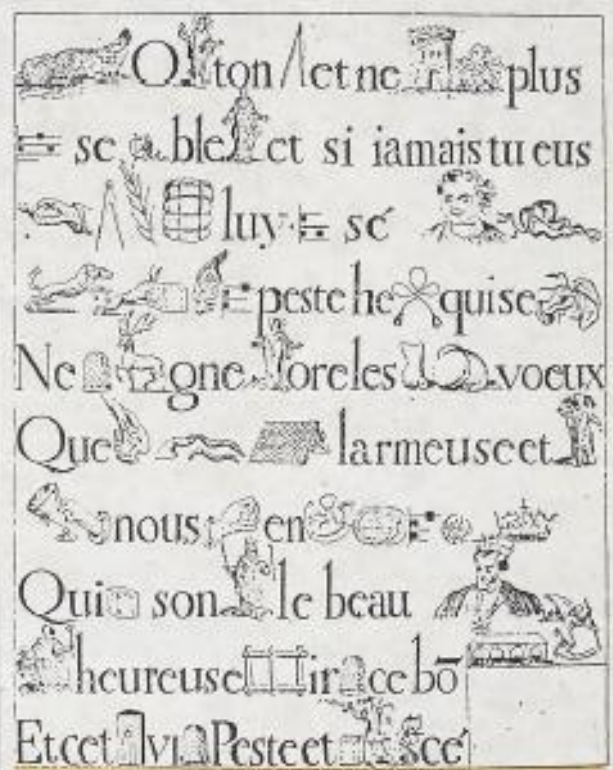 O ton et ne plus
se ble et si iamais tu eus
luy sé
peste he quise
Ne gne ore les voeux
Que larmeuse et
nous en
Qui son le beau
heureuse ir ce bō
Et cet vi Peste et cé